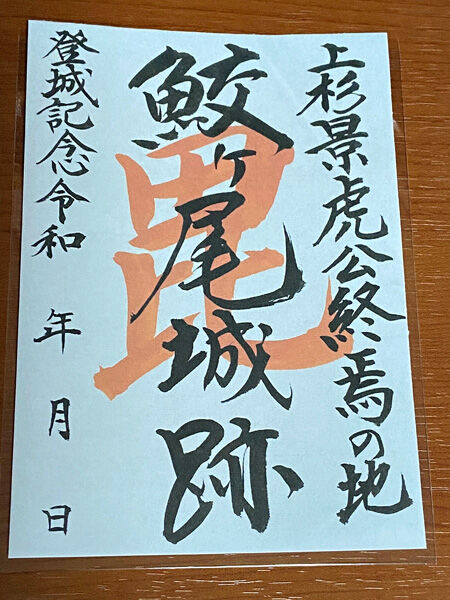 上杉景虎公終焉の地
鮫ヶ尾城跡
毘
登城記念令和 年 月 日